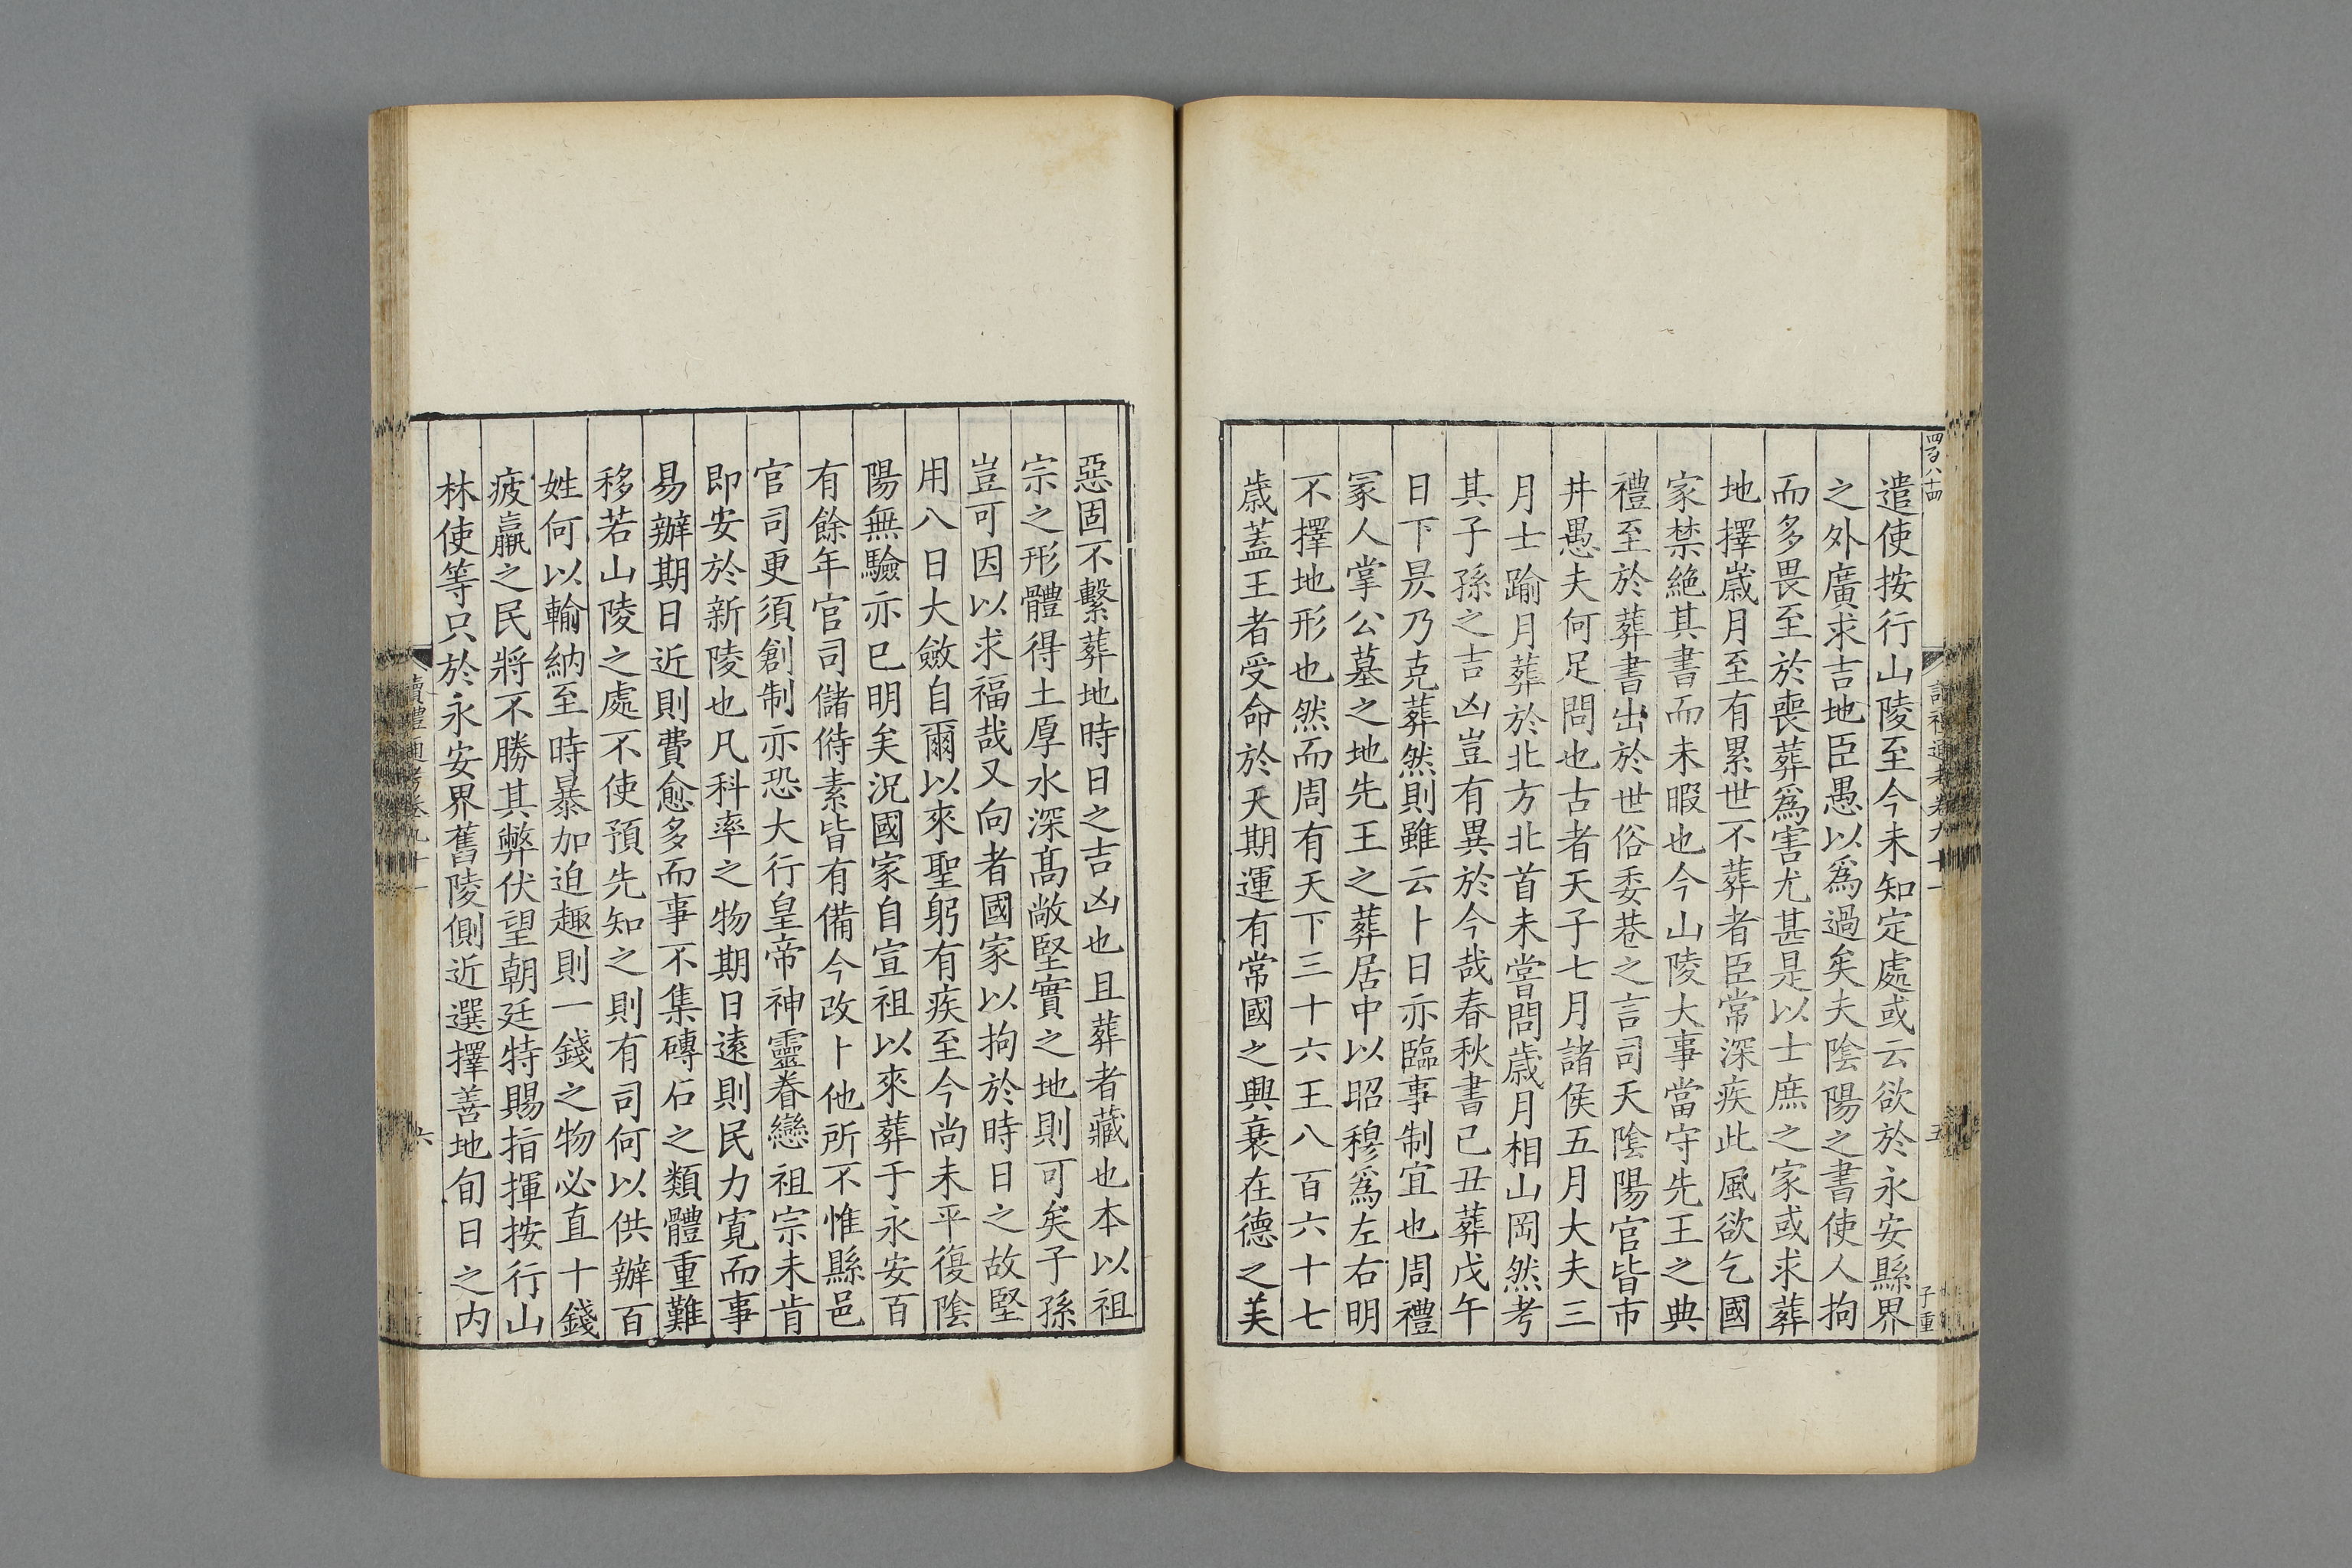 四百八十四
讀禮通考卷九十一
五
子重
遣使按行山陵至今未知定處或云欲於永安縣界
之外廣求吉地臣愚以爲過矣夫陰陽之書使人拘
而多畏至於喪葬爲害尤甚是以士庶之家或求葬
地擇歲月至有累世不葬者臣常深疾此風欲乞國
家禁絶其書而未暇也今山陵大事當守先王之典
禮至於葬書出於世俗委巷之言司天陰陽官皆市
井愚夫何足問也古者天子七月諸侯五月大夫三
月士踰月葬於北方北首未嘗問歲月相山岡然考
其子孫之吉凶豈有異於今哉春秋書己丑葬戊午
日下昃乃克葬然則雖云卜日亦臨事制宜也周禮
冢人掌公墓之地先王之葬居中以昭穆爲左右明
不擇地形也然而周有天下三十六王八百六十七
歲蓋王者受命於天期運有常國之興衰在德之美
惡固不繫葬地時日之吉凶也且葬者藏也本以祖
宗之形體得土厚水深高敞堅實之地則可矣子孫
豈可因以求福哉又向者國家以拘於時日之故堅
用八日大斂自爾以來聖躬有疾至今尚未平復陰
陽無驗亦已明矣況國家自宣祖以來葬于永安百
有餘年官司儲偫素皆有備今改卜他所不惟縣邑
官司更須創制亦恐大行皇帝神靈眷戀祖宗未肯
即安於新陵也凡科率之物期日遠則民力寛而事
易辦期日近則費愈多而事不集磚石之類體重難
移若山陵之處不使預先知之則有司何以供辦百
姓何以輸納至時暴加迫趣則一錢之物必直十錢
疲羸之民將不勝其弊伏望朝廷特賜指揮按行山
林使等只於永安界舊陵側近選擇善地旬日之内
讀禮通考卷九十一
六